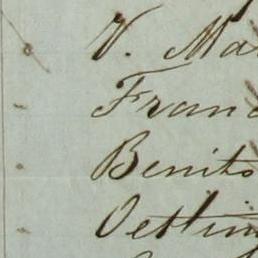 V. Ma
Franc
Benito
Oetting